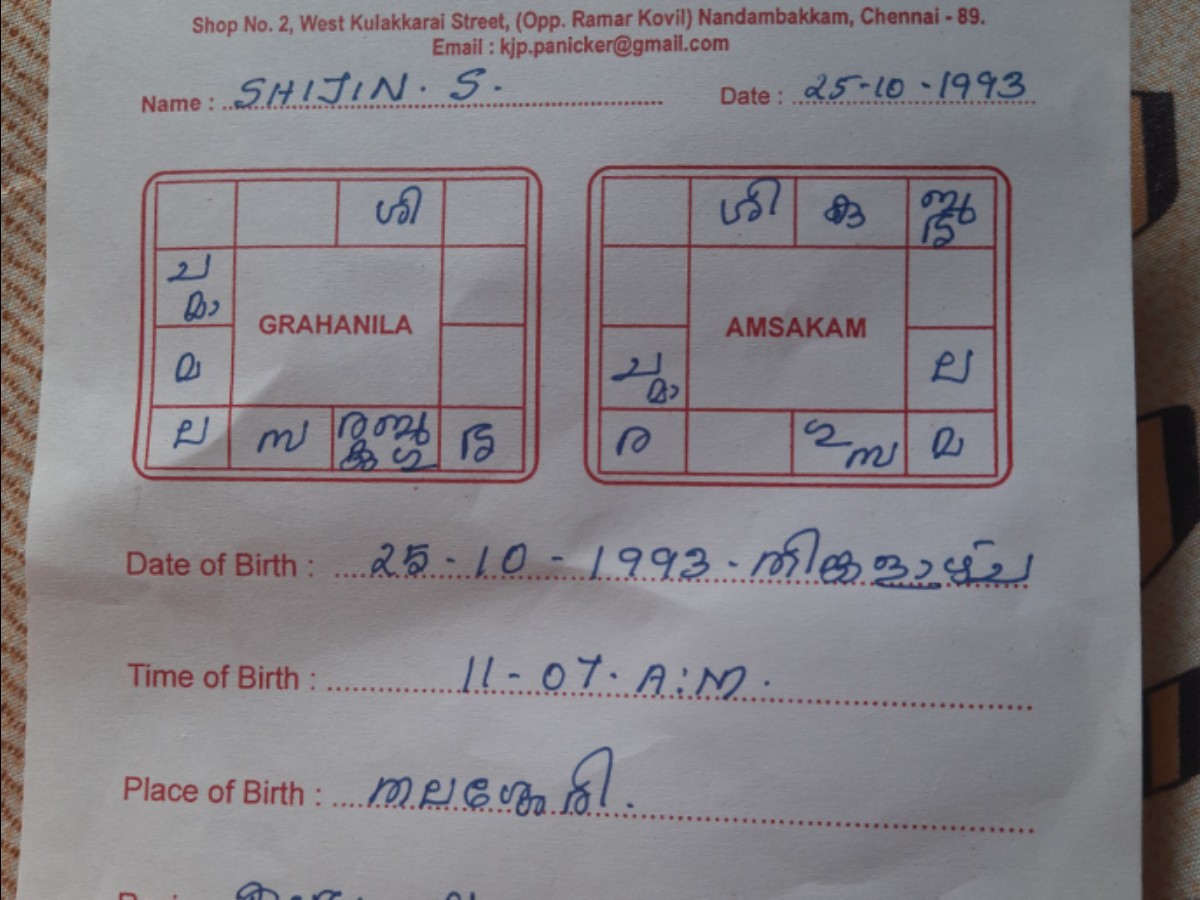 Shop No. 2, West Kulakkarai Street, (Opp. Ramar Kovil) Nandambakkam, Chennai - 89.
Email : kjp.panicker@gmail.com
Name : SHIJIN. S. Date : 25-10-1993
ശി
ച
മാ
GRAHANILA
മ
ല സ ര ബു ഭൃ
കു ഗു
ശി കു ബു
ഭൃ
AMSAKAM
ച ല
മാ
ര ഗു മ
സ
Date of Birth : 25-10-1993-തിങ്കളാഴ്ച
Time of Birth : 11-07. A:M.
Place of Birth : തലശ്ശേരി.